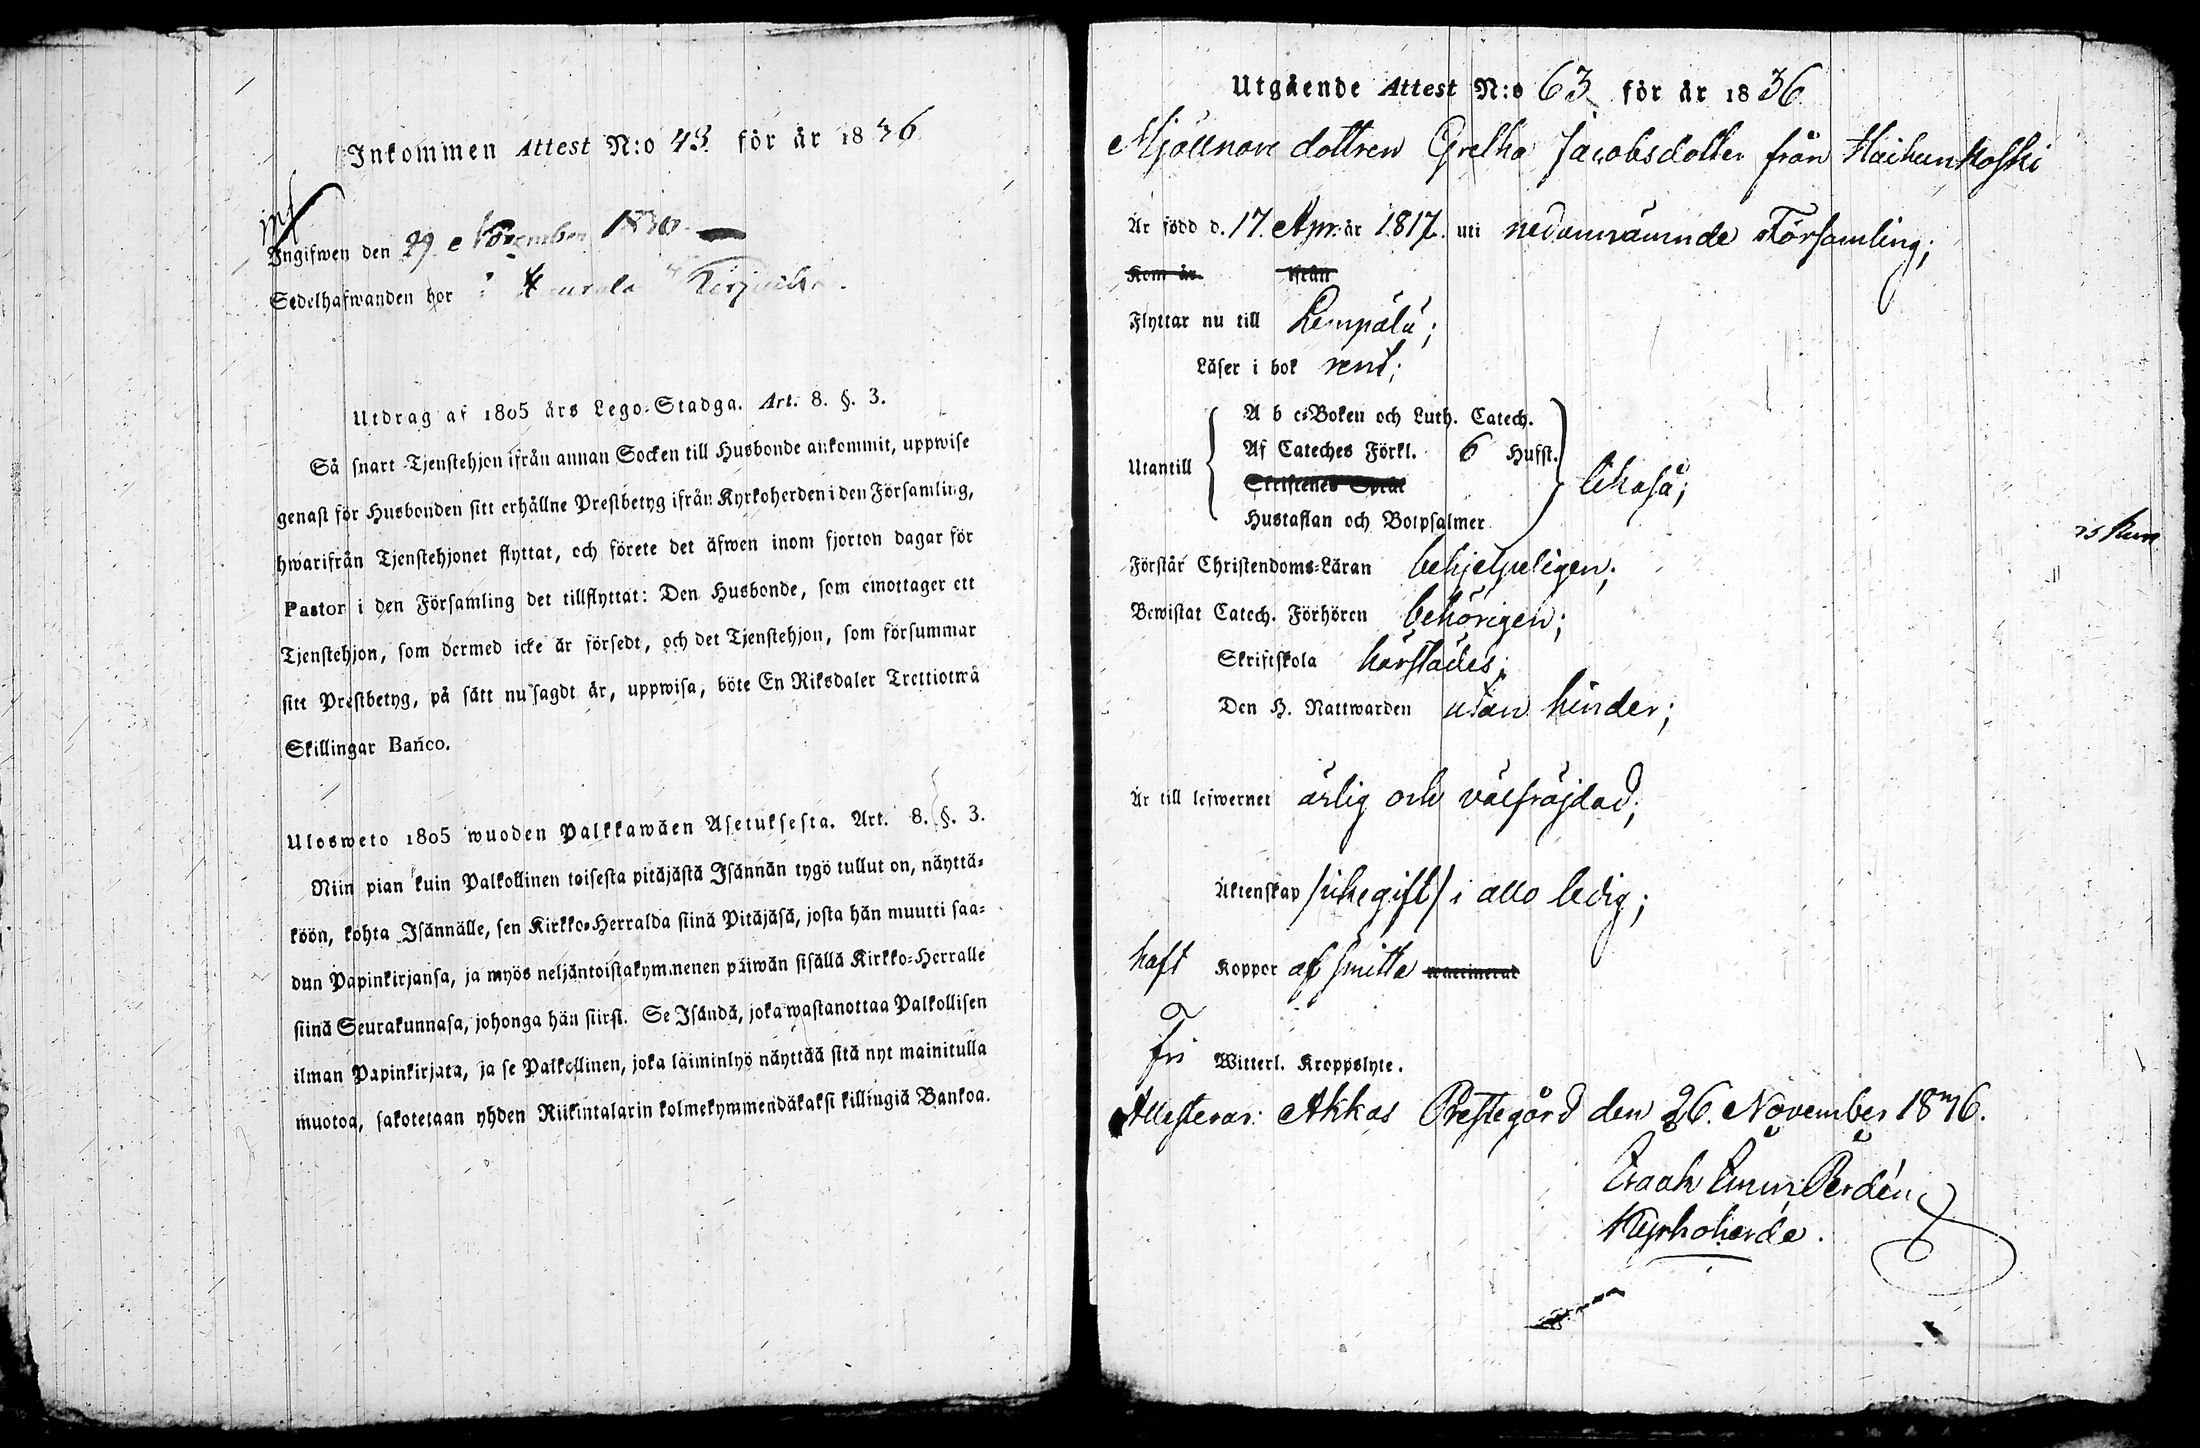 Inkommen Attest N:o 43 för år 1836
Ingifwen den 29 November 1836
Sedelhafwanden bor i
Utdrag af 1805 års Lego-Stadga. Art. 8. §. 3.
Så snart Tjenstehjon ifrån annan Socken till Husbonde ankommit, uppwise
genast för Husbonden sitt erhållne Prestbetyg ifrån Kyrkoherden i den Församling,
hwarifrån Tjenstehjonet flyttat, och förete det äfwen inom fjorton dagar för
Pastor i den Församling det tillflyttat: Den Husbonde, som emottager ett
Tjenstehjon, som dermed icke är försedt, och det Tjenstehjon, som försummar
sitt Prestbetyg, på sätt nu sagdt är, uppwisa, böte En Riksdaler Trettiotwå
Skillingar Banco.
Ulosweto 1805 wuoden Palkkawäen Asetuksesta. Art. 8. §. 3.
Niin pian kuin Palkollinen toisesta pitäjästä Isännän tygö tullut on, näyttä-
köön, kohta Isännälle, sen Kirkko-Herralda siinä Pitäjäsä, josta hän muutti saa-
dun Papinkirjansa, ja myös neljäntoistakymmenen päiwän sisällä Kirkko-Herralle
siinä Seurakunnasa, johonga hän siirsi. Se Isändä, joka wastanottaa Palkollisen
ilman Papinkirjata, ja se Palkollinen, joka laiminlyö näyttää sitä nyt mainitulla
muotoa, sakotetaan yhden Riikintalarin kolmekymmendäkaksi killingiä Bankoa.
Utgående Attest N:o 63 för år 1836
Mjöllnare dottren Gretha Jacobsdotter från Haihunkoski
Är född d. 17. Apr. år 1817. uti nedannämnde Församling;
Kom år ifrån
Flyttar nu till Lempälä;
Läser i bok rent;
A b c-Boken och Luth. Catech.
Af Cateches Förkl. 6 Hufst.
Utantill likaså;
Skriftenes Språk
Hustaflan och Botpsalmer
Förstår Christendoms-Läran behjelpeligen;
Bewistat Catech. Förhören behörigen;
Skriftskola härstädes;
Den H. Nattwarden utan hinder;
Är till lefwernet ärlig och välfräjdad;
Äktenskap /icke gift/ i allo ledig;
haft Koppor af smitta waccinerat
Fri Witterl. Kroppslyte.
Attesterar: Akkas Prestegård den 26. November 1836.
Perdén
Kyrkoherde.